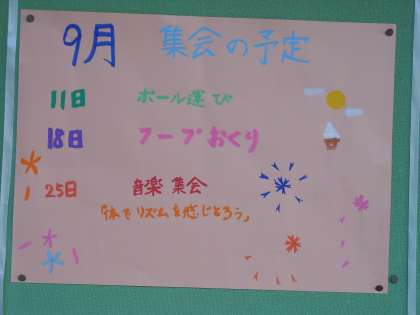 9月 集会の予定
11日 ボール運び
18日 フープおくり
25日 音楽集会
「体でリズムを感じとろう」